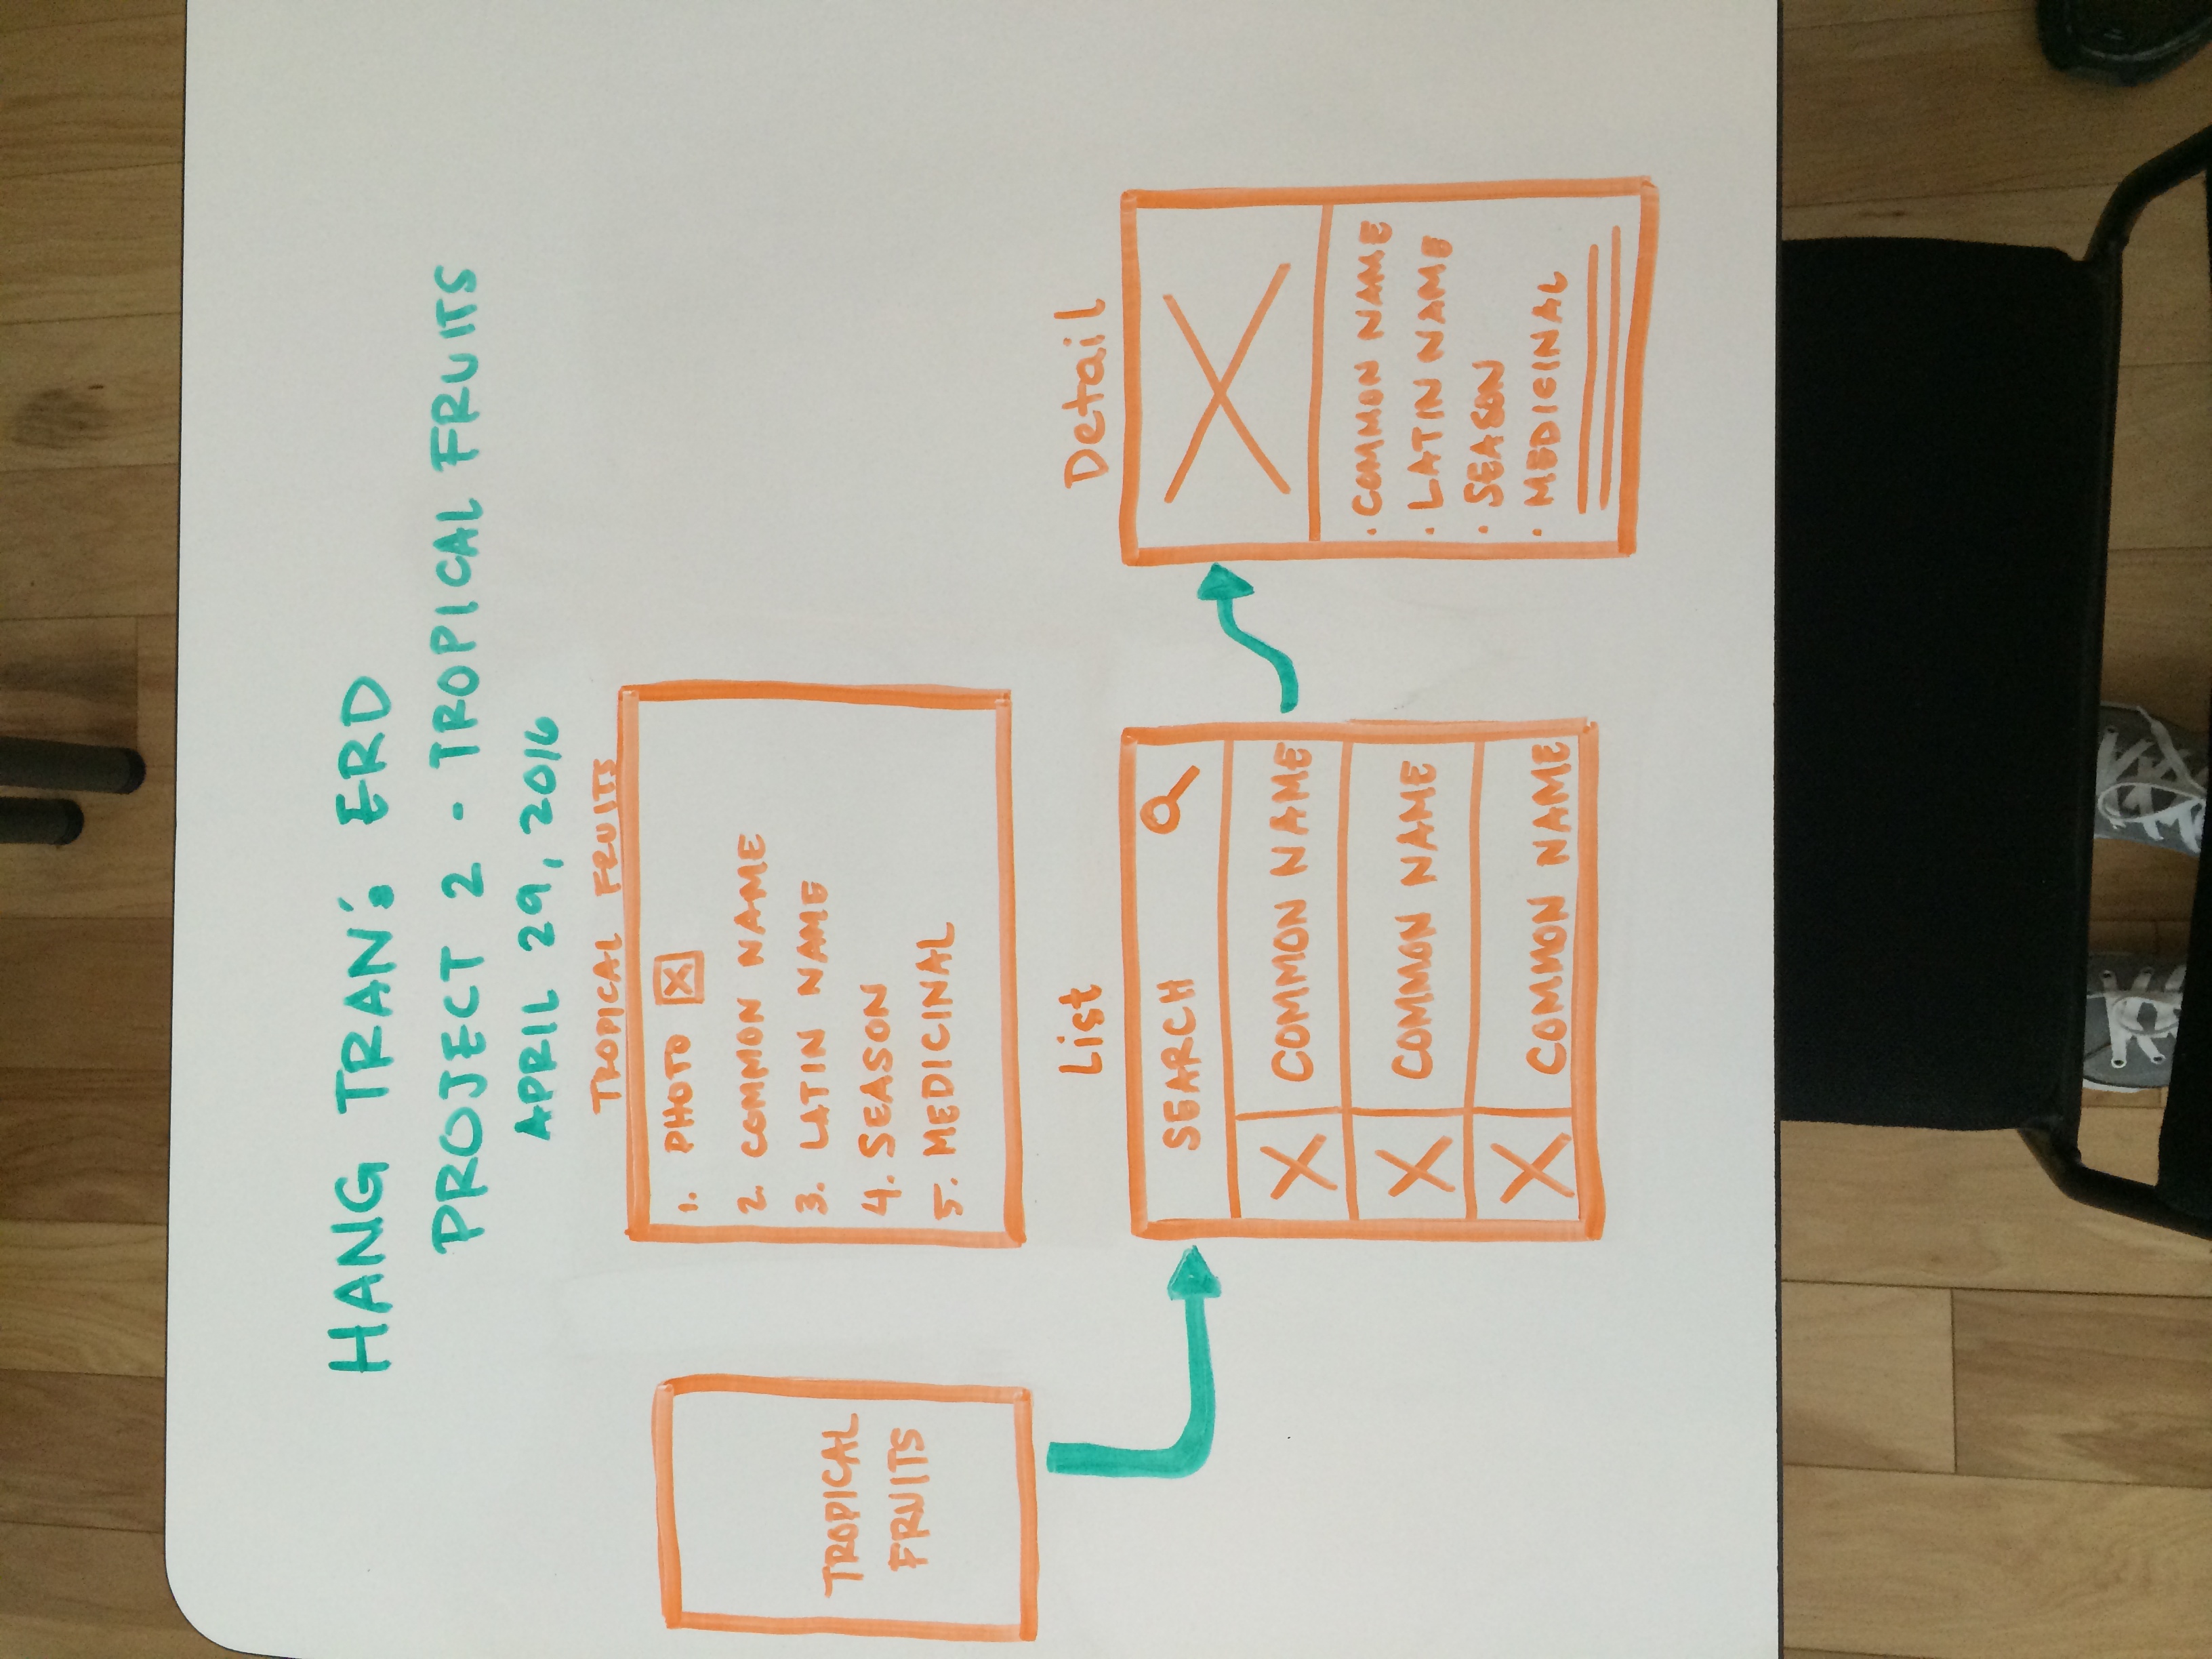 HANG TRAN: ERD
PROJECT 2 - TROPICAL FRUITS
APRIL 29, 2016
TROPICAL FRUITS
1. PHOTO
2. COMMON NAME
3. LATIN NAME
4. SEASON
5. MEDICINAL
TROPICAL
FRUITS
List
SEARCH
COMMON NAME
COMMON NAME
COMMON NAME
Detail
· COMMON NAME
· LATIN NAME
· SEASON
· MEDICINAL